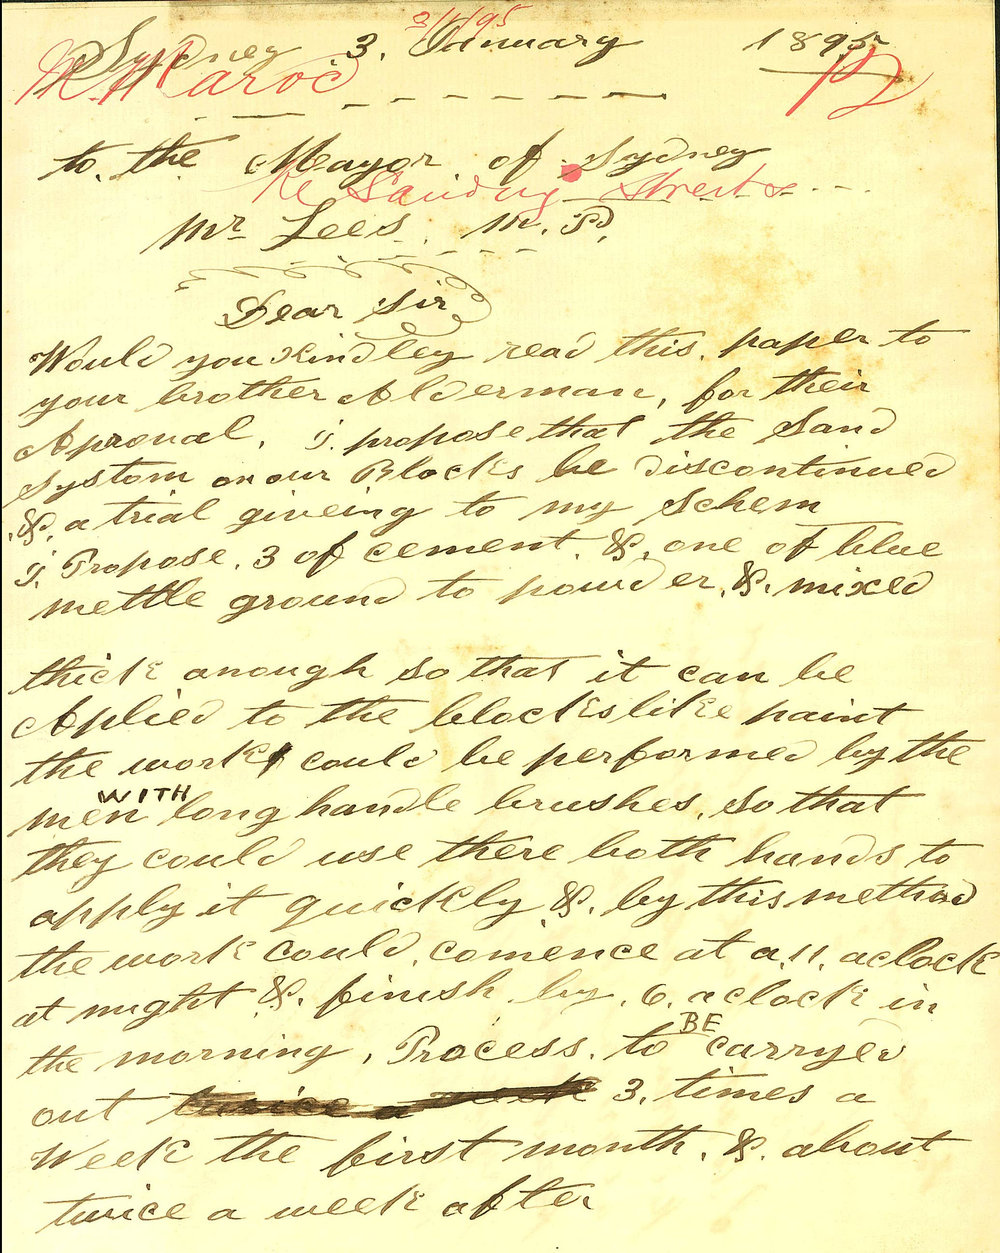 3/1/95
Sydney 3. January 1895
to. the Mayor of Sydney
Re Sanding Streets
Mr Lees. M. P.
Dear Sir
Would you Kindley read this. paper to
your brother Alderman, for their
Aproval. I. propose that the Sand
Systom on our Blocks be discontinued
&. a trial giveing to my Schem
I. Propose. 3 of cement. &. one of blue
mettle ground to powder. &. mixed
thick anough so that it can be
Applied to the blocks like paint
the work could be performed by the
men WITH long handle brushes. So that
they could use there both hands to
apply it quickly &. by this method
the work could. comence at a. 11. aclock
at nught &. finish by. 6. aclock in
the morning, Process. to BE carryed
out twice a week 3. times a
Week the first month. &. about
twice a week after